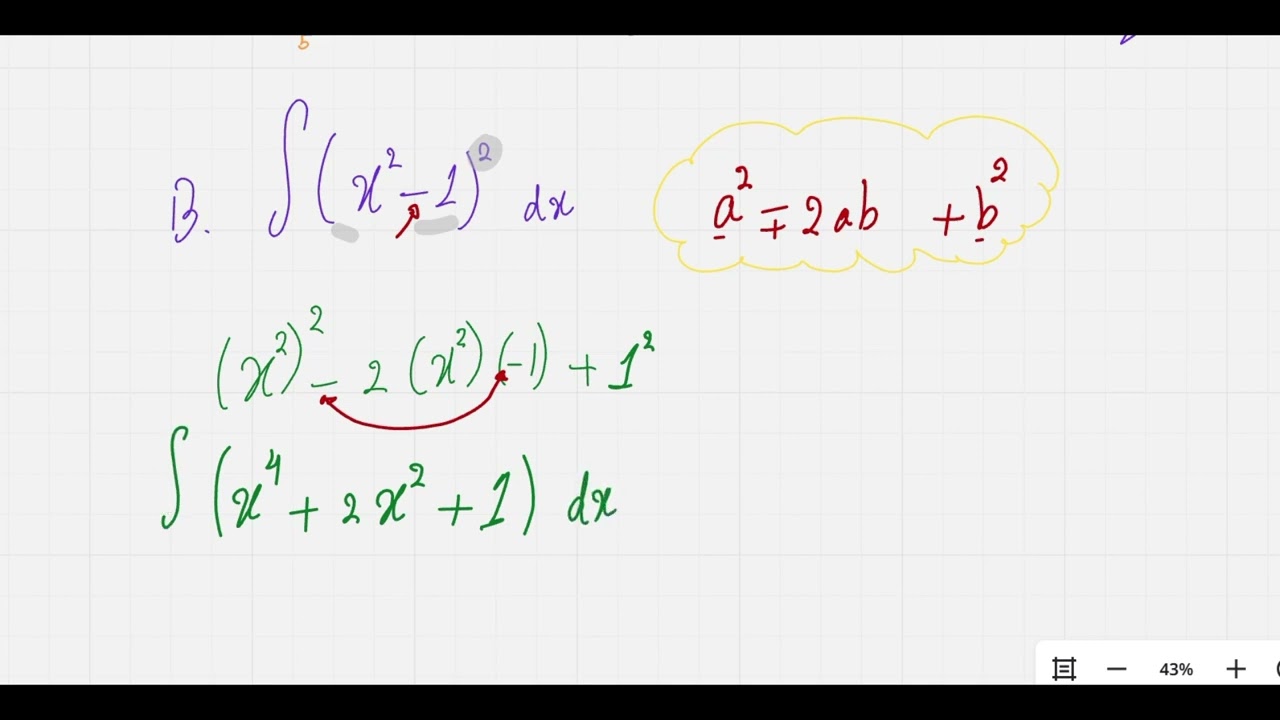 b
B. ∫ (x² − 1)² dx
a² ∓ 2ab + b²
(x²)² − 2 (x²) (−1) + 1²
∫ (x⁴ + 2x² + 1) dx
43%